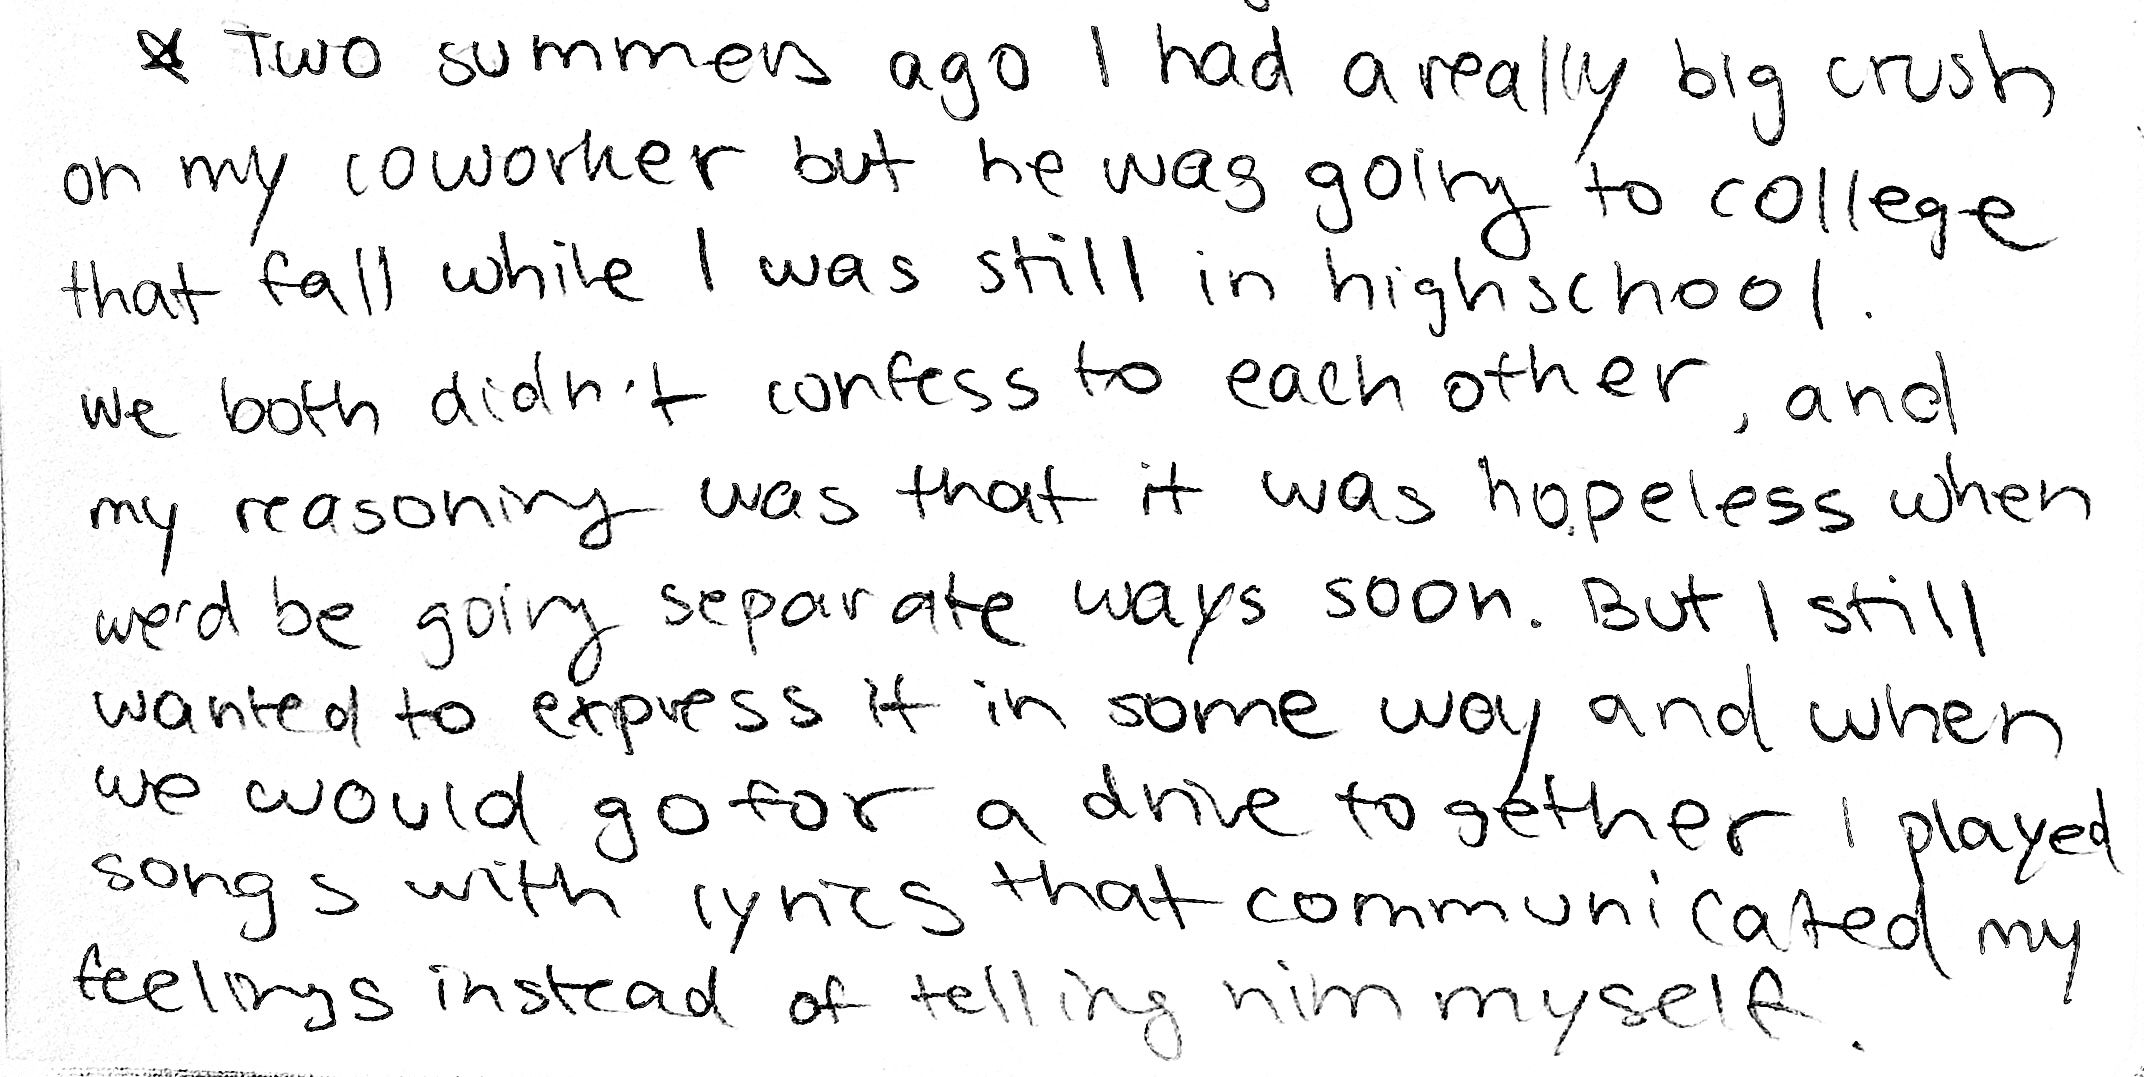 ☆ Two summers ago I had a really big crush
on my coworker but he was going to college
that fall while I was still in highschool.
we both didn't confess to each other, and
my reasoning was that it was hopeless when
we'd be going separate ways soon. But I still
wanted to express it in some way and when
we would go for a drive together I played
songs with lyrics that communicated my
feelings instead of telling him myself.